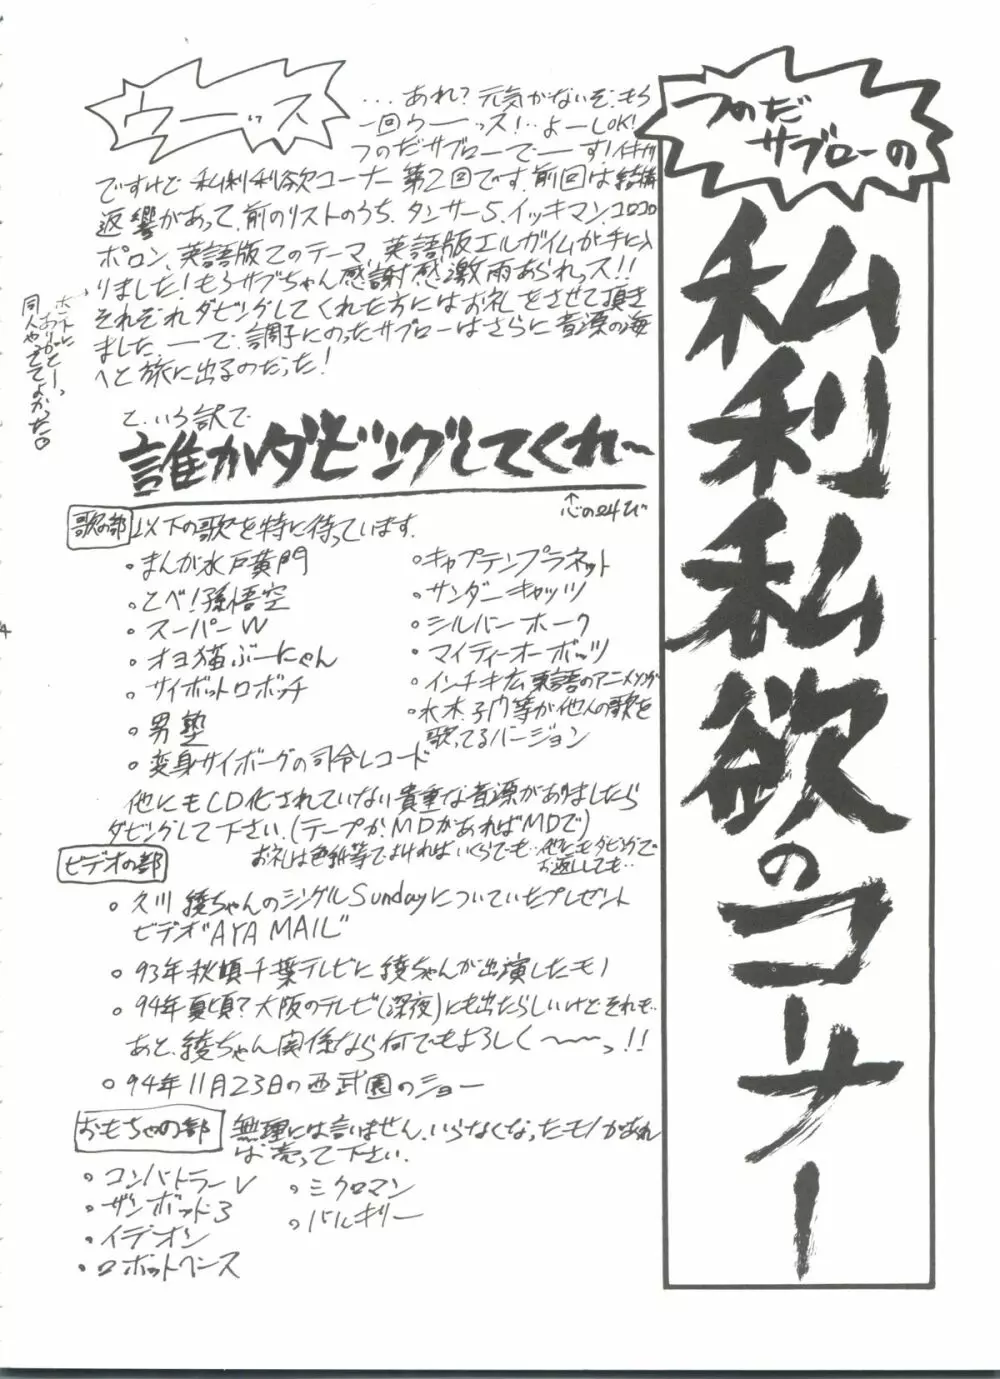 つのだ
サブローの
私利私欲のコーナー
ウーッス
...あれ?元気がないぞ.もう
一回ウーーッス!..よーしOK!
つのだサブローでーーす!イキナリ
ですけど私利私欲コーナー第2回です.前回は結構
返響があって、前のリストのうち、タンサー5、イッキマン、コロコロ
ポロン、英語版Zのテーマ、英語版エルガイムが手に入
りました!もうサブちゃん感謝感激雨あられっス!!
それぞれダビングしてくれた方にはお礼をさせて頂き
ました、ーーで、調子にのったサブローはさらに音源の海
へと旅に出るのだった!
ホントに
ありがとーっ
同人やっててよかった。
と、いう訳で
誰かダビングしてくれ〜
↑心の叫び
歌の部 以下の歌を特に待っています.
・まんが水戸黄門
・とべ!孫悟空
・スーパーW
・オヨ猫ぶーにゃん
・サイボットロボッチ
・男塾
・変身サイボーグの司令レコード
・キャプテンプラネット
・サンダーキャッツ
・シルバーホーク
・マイティーオーボッツ
・インチキ広東語のアニメソング
・水木、子門等が他人の歌を
歌ってるバージョン
他にもCD化されていない貴重な音源がありましたら
ダビングして下さい.(テープか、MDがあればMDで)
お礼は色紙等でよければいくらでも…他にもダビングで
お返ししても..
ビデオの部
・久川綾ちゃんのシングルSundayについていたプレゼント
ビデオ"AYA MAIL"
・93年秋頃千葉テレビに綾ちゃんが出演したモノ
・94年夏頃?大阪のテレビ(深夜)にも出たらしいけどそれも..
あと、綾ちゃん関係なら何でもよろしく〜〜〜っ!!
・94年11月23日の西武園のショー
おもちゃの部 無理には言いません.いらなくなったモノがあれ
ば売って下さい.
・コンバトラーV
・ザンボット3
・イデオン
・ロボット8ンス
・ミクロマン
・バルキリー